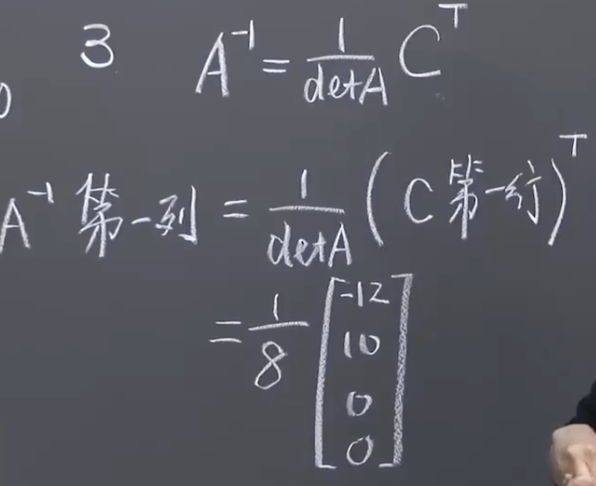 3 A⁻¹ = 1/detA Cᵀ
0
A⁻¹ 第一列 = 1/detA (C 第一行)ᵀ
= 1/8 [-12
10
0
0]